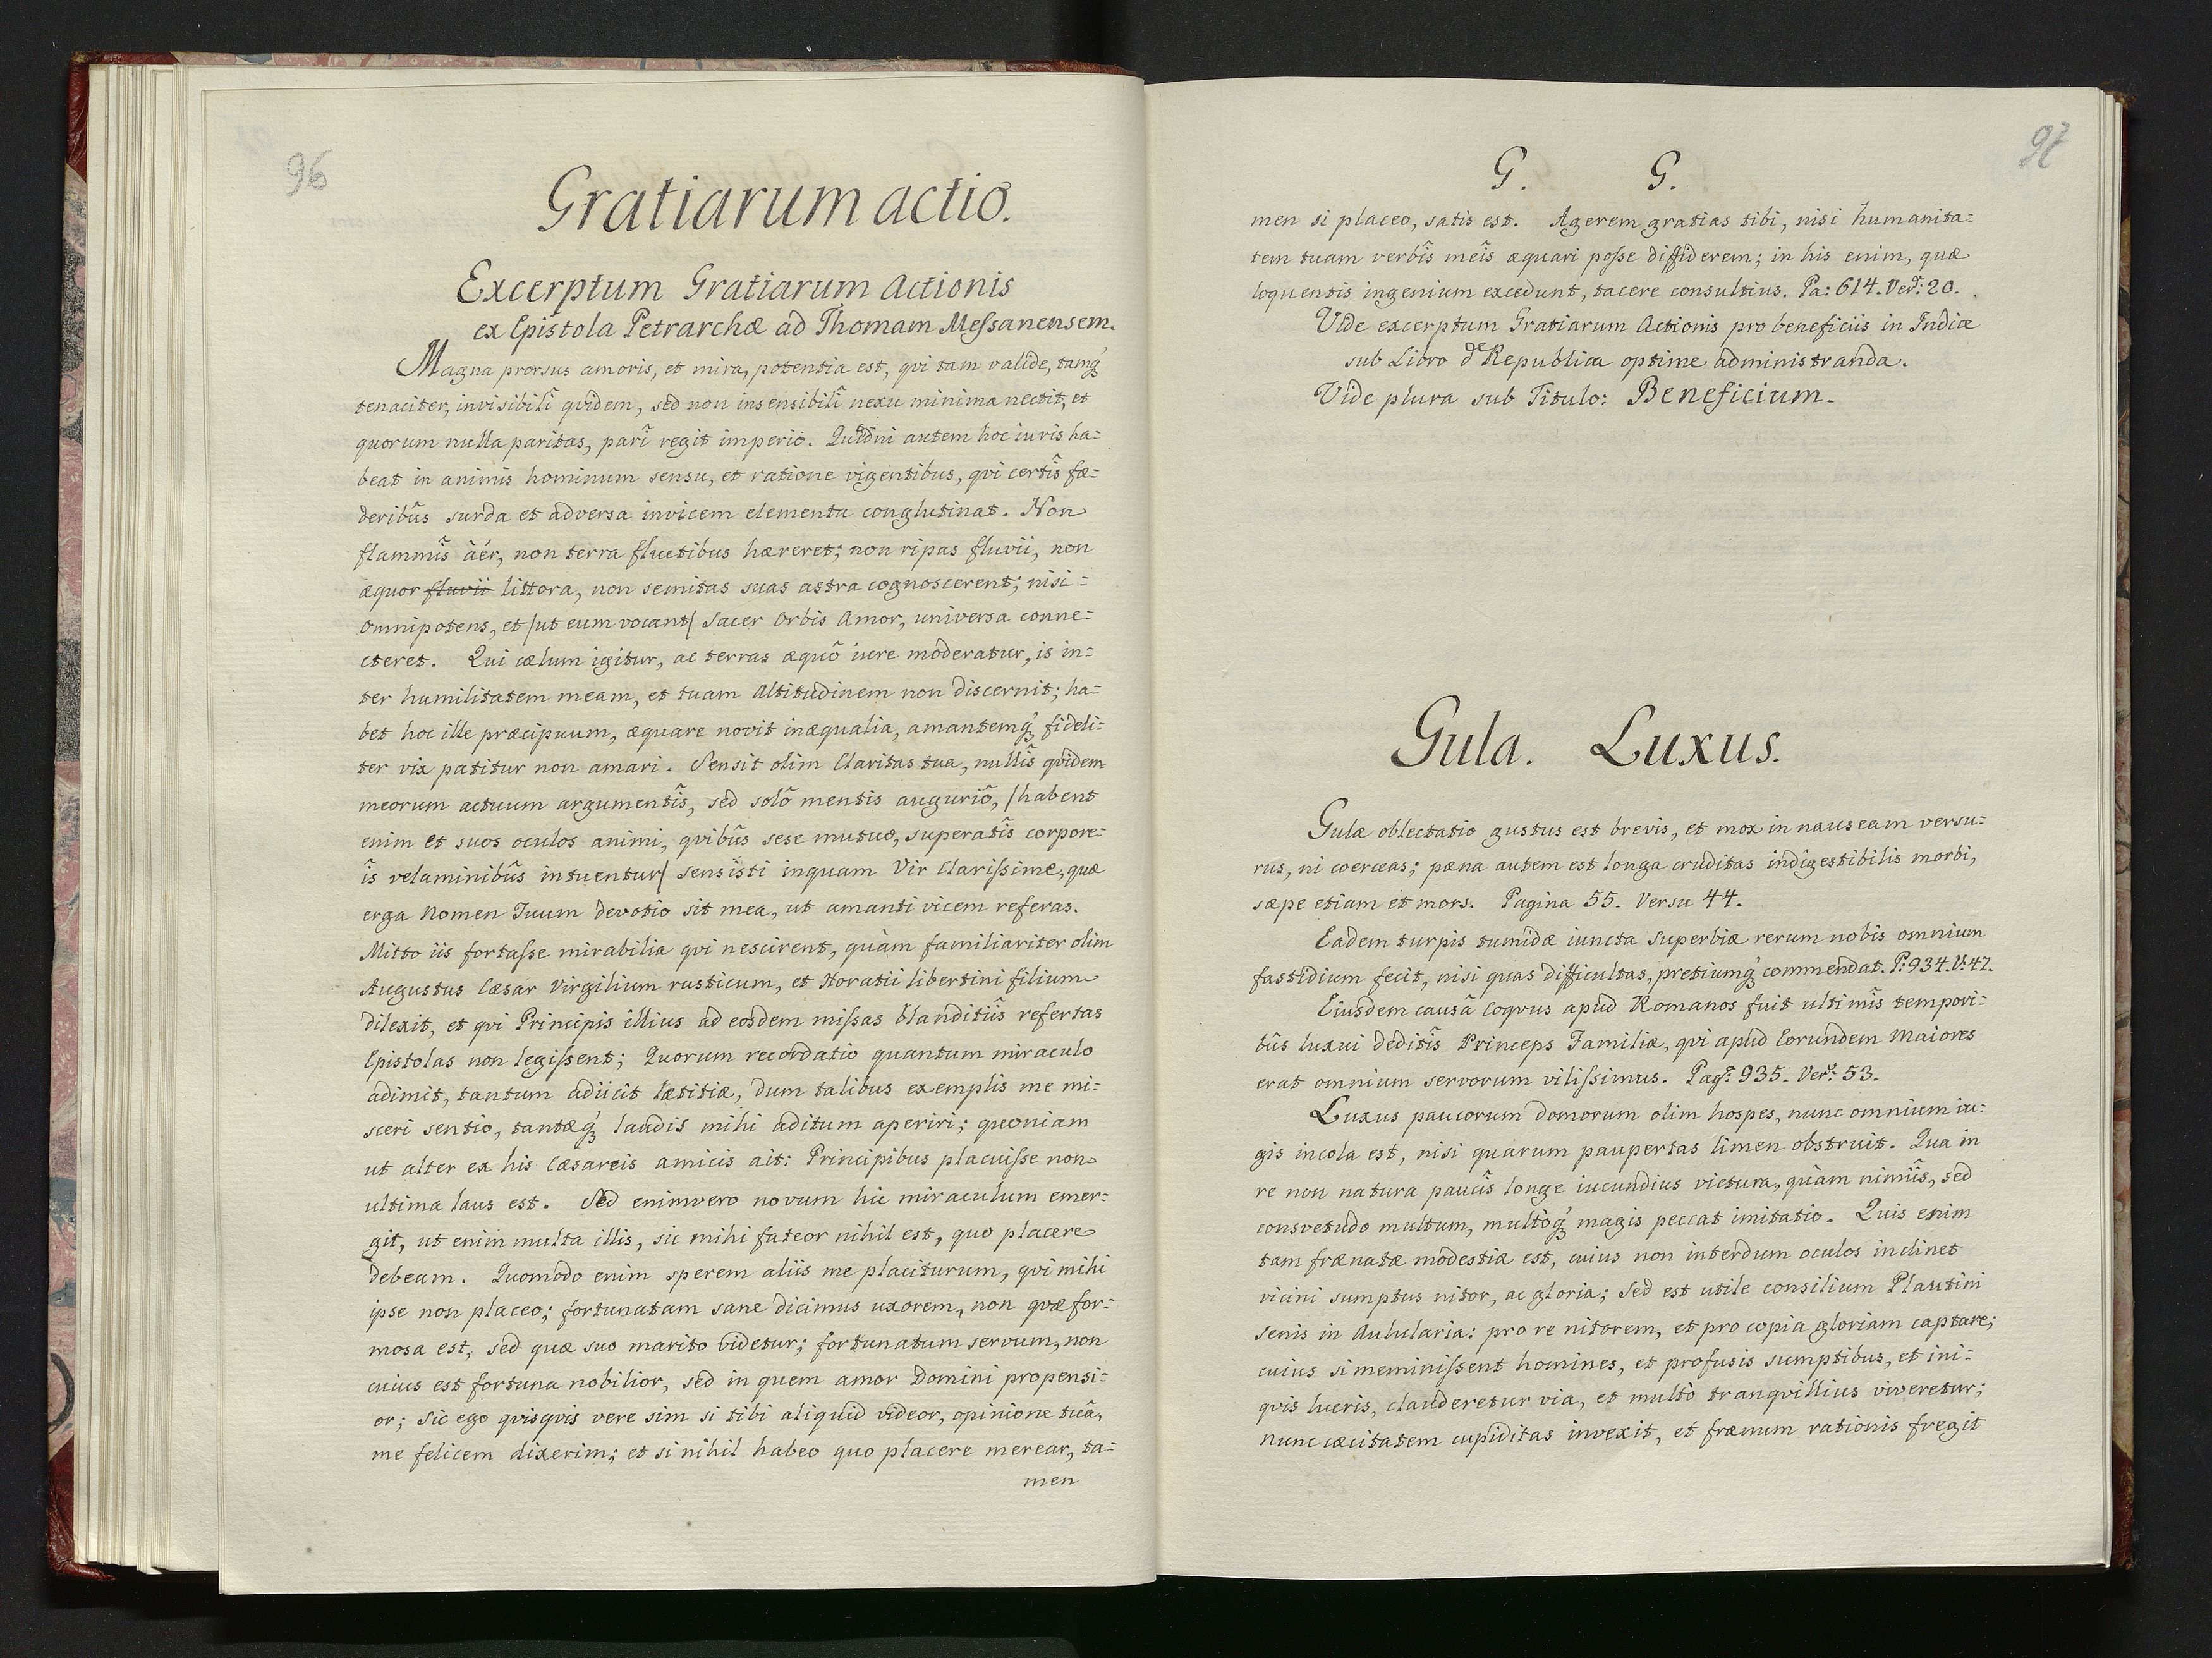 96
Gratiarum actio.
Excerptum Gratiarum Actionis
ex Epistola Petrarchæ ad Thomam Meſsanensem.
Magna prorsus amoris, et mira, potentia est, qvi tam valide, tamq́ꝫ
tenaciter, invisibilî qvidem, sed non insensibilî nexu minima nectit, et
quorum nulla paritas, parî regit imperiô. Quidni autem hoc iuris ha=
beat in animis hominum sensu, et ratione vigentibus, qvi certîs fæ=
deribûs surda et adversa invicem elementa conglutinat. Non
flammîs àér, non terra fluctibus hæreret; non ripas fluvii, non
æquor ~~fluvii~~ littora, non semitas suas astra cognoscerent; nisi=
Omnipotens, et /ut eum vocant/ Sacer Orbis Amor, universa conne=
cteret. Qui cælum igitur, ac terras æquô iure moderatur, is in=
ter humilitatem meam, et tuam Altitudinem non discernit; ha=
bet hoc ille præcipuum, æquare novit inæqualia, amantemq́ꝫ fideli=
ter vix patitur non amari. Sensit olim Claritas tua, nullîs qvidem
meorum actuum argumentîs, sed solô mentis auguriô, /habent
enim et suos oculos animi, qvibûs sese mutuo, superatîs corpore=
îs velaminibûs intuentur/ sensisti inquam Vir Clariſsime, quæ
erga Nomen Tuum devotio sit mea, ut amanti vicem referas.
Mitto iis fortaſse mirabilia qvi nescirent, quàm familiariter olim
Augustus Cæsar Virgilium rusticum, et Horatii libertini filium
dilexit, et qvi Principis illius ad eosdem miſsas blanditiîs refertas
Epistolas non legiſsent; Quorum recordatio quantum miraculo
adimit, tantum adiicit lætitiæ, dum talibus exemplis me mi=
sceri sentio, tantæq́ꝫ laudis mihi aditum aperiri; queoniam
ut alter ex his Cæsareis amicis ait: Principibus placuiſse non
ultima laus est. Sed enimvero novum hic miraculum emer=
git, ut enim multa illis, sic mihi fateor nihil est, quo placere
debeam. Quomodo enim sperem aliis me placiturum, qvi mihi
ipse non placeo; fortunatam sane dicimus uxorem, non quæ for=
mosa est, sed quæ suo marito videtur; fortunatum servum, non
cuius est fortuna nobilior, sed in quem amor Domini propensi=
or; Sic ego qvisqvis vere sim si tibi aliquid videor, opinione tuâ,
me felicem dixerim; et si nihil habeo quo placere merear, ta=
men
97
G. G.
men si placeo, satis est. Agerem gratias tibi, nisi humanita=
tem tuam verbîs meîs æquari poſse diffiderem; in his enim, quæ
loquentis ingenium excedunt, tacere consultius. Pa: 614. Ver: 20.
Vide excerptum Gratiarum Actionis pro beneficiis in Indice
sub Libro de Republica optime administranda.
Vide plura sub Titulo: Beneficium.
Gula. Luxus.
Gulæ oblectatio gustus est brevis, et mox in nauseam versu=
rus, ni coerceas; pæna autem est longa cruditas indigestibilis morbi,
sæpe etiam et mors. Pagina 55. Versu 44.
Eadem turpis tumidæ iuncta Superbiæ rerum nobis omnium
fastidium fecit, nisi quas difficultas, pretiumq́ꝫ commendat. P: 934. V: 47.
Eiusdem causâ Coqvus apud Romanos fuit ultimîs tempori=
bûs luxui deditîs Princeps Familiæ, qvi apud Eorundem Maiores
erat omnium servorum viliſsimus. Pag: 935. Ver: 53.
Luxus paucorum domorum olim hospes, nunc omnium iu=
gis incola est, nisi quarum paupertas limen obstruit. Qua in
re non natura paucîs longe iucundius victura, quàm nimiîs, sed
consvetudo multum, multòq́ꝫ magis peccat imitatio. Quis enim
tam frænatæ modestiæ est, cuius non interdum oculos inclinet
vicini sumptus nitor, ac gloria; Sed est utile consilium Plautini
Senis in Aulularia: pro re nitorem, et pro copia gloriam captare;
cuius si meminiſsent homines, et profusis sumptibus, et ini=
qvis lucris, clauderetur via, et multò tranqvillius viveretur;
Nunc cæcitatem cupiditas invexit, et frænum rationis fregit